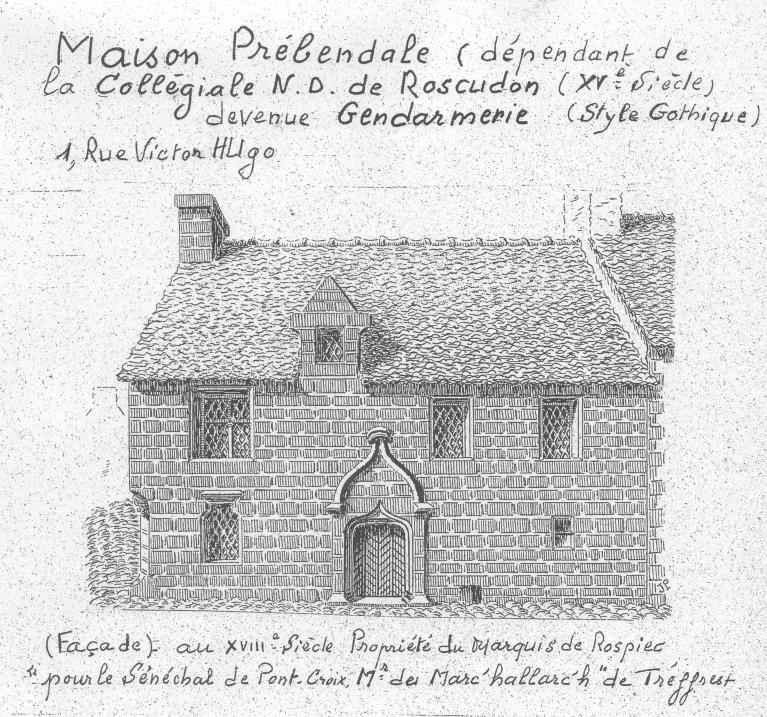 Maison Prébendale (dépendant de
la Collégiale N.D. de Roscudon (XVè Siècle)
devenue Gendarmerie (Style Gothique)
1, Rue Victor HUgo
JP
(Façade) - au XVIIIè Siècle Propriété du Marquis de Rospiec
pour le Sénéchal de Pont-Croix, Mr du Marc'hallarc'h "de Tréffrest